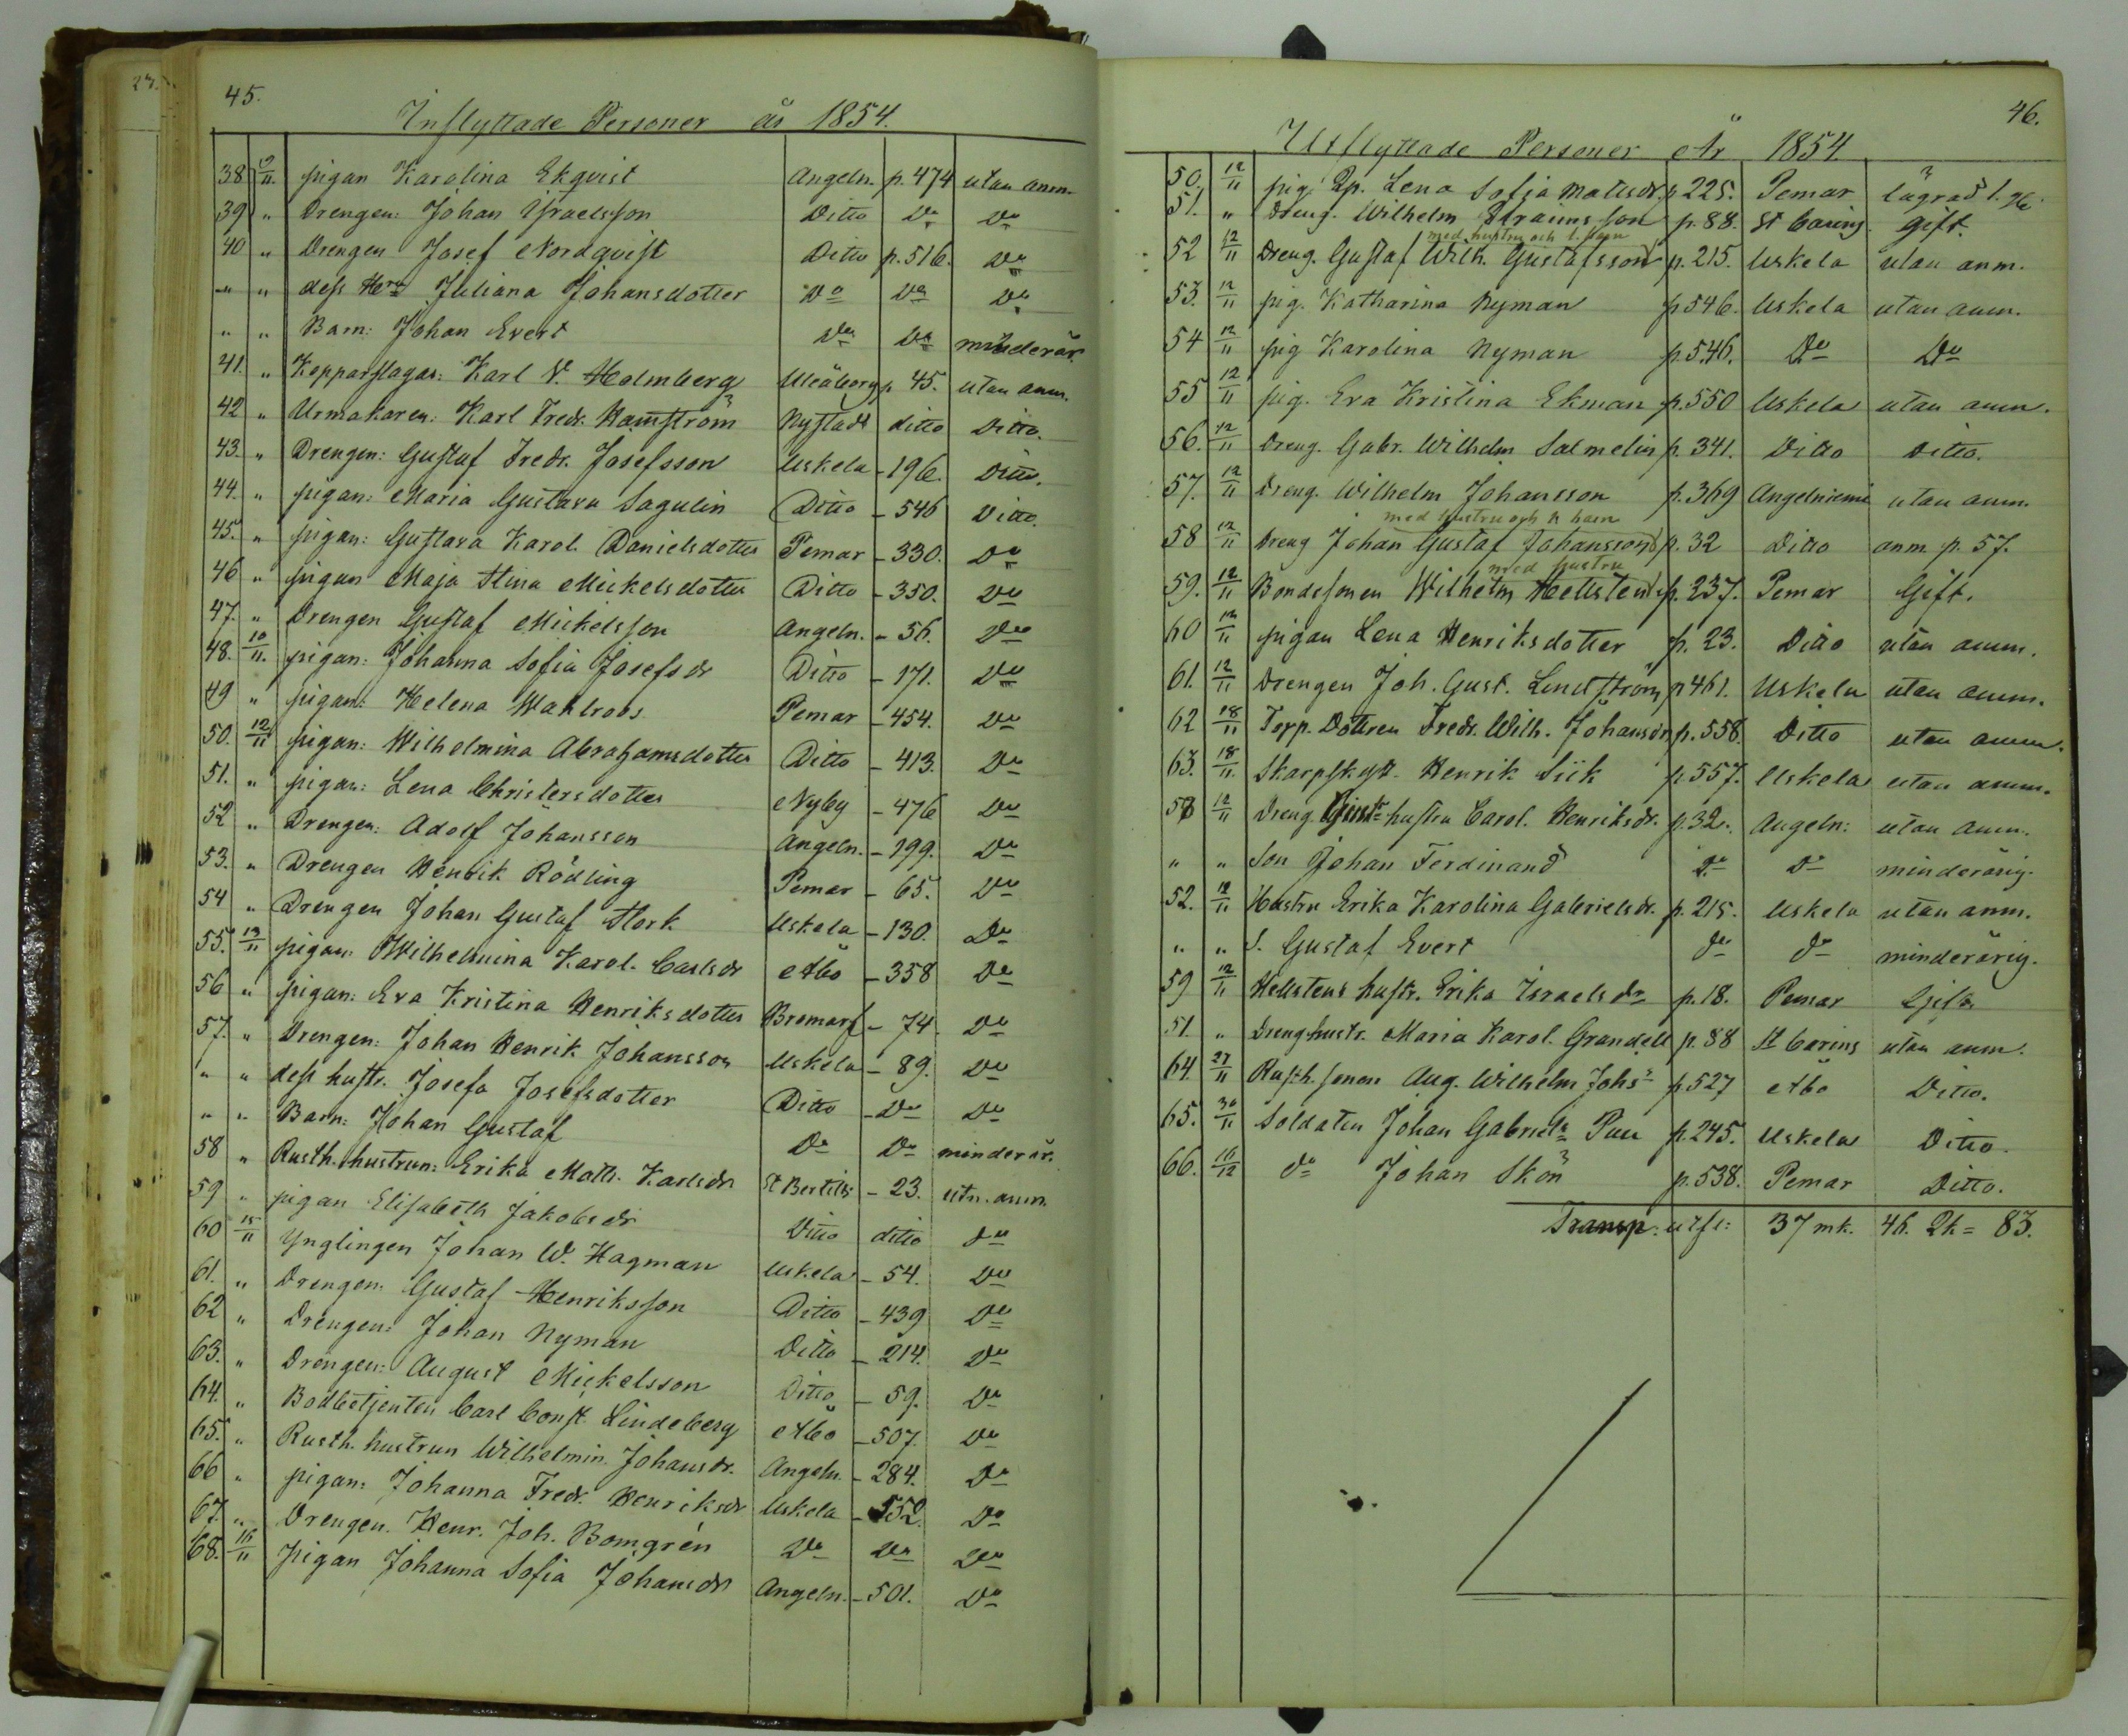 27.
45.
Inflyttade Personer år 1854.
38 9/11. pigan Karolina Ekqvist Angeln. p. 474 utan anm.
39 " Drengen: Johan Ysraelsson Ditto Do Do
40 " Drengen Josef Nordqvist Ditto p. 516. Do
" " dess Hru Juliana Johansdotter Do Do Do
" " Barn: Johan Evert Do Do minderår.
41. " Kopparslagar: Karl V. Holmberg Uleåborg p. 45. utan anm.
42 " Urmakaren: Karl Fredr. Hamström Nystadt ditto Ditto.
43. " Drengen: Gustaf Fredr. Josefsson Uskela - 196. Ditto.
44. " pigan: Maria Gustava Sagulin Ditto - 546 Ditto.
45. " pigan: Gustava Karol. Danielsdotter Pemar - 330. Do
46 " pigan Maja Stina Mickelsdotter Ditto - 350. Do
47. " Drengen Gustaf Mickelsson Angeln. - 56. Do
48. 10/11. pigan: Johanna Sofia Josefsdr Ditto - 171. Do
49 " pigan: Helena Wahlroos Pemar - 454. Do
50. 12/11 pigan: Wilhelmina Abrahamsdotter Ditto - 413. Do
51. " pigan: Lena Christersdotter Nyby - 476 Do
52 " Drengen: Adolf Johansson Angeln. - 199. Do
53. " Drengen Henrik Rödling Pemar - 65. Do
54 " Drengen Johan Gustaf Stork Uskela - 130. Do
55. 13/11 pigan: Wilhelmina Karol. Carlsdr Åbo - 358 Do
56 " pigan: Eva Kristina Henriksdotter Bromarf - 74. Do
57. " Drengen: Johan Henrik Johansson Uskela - 89. Do
" " dess hustr. Josefa Josefsdotter Ditto - Do Do
" " Barn: Johan Gustaf Do Do minderår.
58 " Rusth. hustrun: Erika Math. Karlsdr St Bertils - 23. utn. anm.
59 " pigan Elisabeth Jakobsdr Ditto ditto do
60 15/11 Ynglingen Johan W. Hagman Uskela - 54. Do
61. " Drengen: Gustaf Henriksson Ditto - 439 Do
62 " Drengen: Johan Nyman Ditto - 214. Do
63. " Drengen: August Mickelsson Ditto - 59. Do
64. " Bodbetjenten Carl Const. Lindeberg Åbo - 507. Do
65. " Rusth. hustrun Wilhelmin. Johansdr. Angeln. - 284. Do
66 " pigan: Johanna Fredr. Henriksdr Uskela - 552. Do
67. " Drengen. Henr. Joh. Bomgrén Do Do Do
68. 16/11 Pigan Johanna Sofia Johansdr Angeln. - 501. Do
46.
Utflyttade Personer År 1854
50. 12/11 pig. Lena Sofia Mattsdr. p 225. Pemar
51. " Dreng. Wilhelm p. 88. St Carins. gift.
med hustru och 1. barn
52 12/11 Dreng. Gustaf Wilh. Gustafsson p. 215. Uskela utan anm.
53. 12/11 pig. Katharina Nyman p 546. Uskela utan anm.
54 12/11 pig Karolina Nyman p. 546. Do Do
55 12/11 pig. Eva Kristina Ekman p. 550 Uskela utan anm.
56. 12/11 Dreng. Gabr. Wilhelm Salmelin p. 341. Ditto Ditto.
57. 12/11 Dreng. Wilhelm Johansson p. 369 Angelniemi utan anm.
med hustru och barn
58 12/11 Dreng Johan Gustaf Johansson p. 32 Ditto anm. p. 57.
med hustru
59. 12/11 Bondesonen Wilhelm Hellsten p. 237. Pemar Gift.
60 12/11 pigan Lena Henriksdotter p. 23. Ditto utan anm.
61. 12/11 Drengen Joh. Gust. Lindström p 461. Uskela utan anm.
62 18/11 Torp. Dottren Fredr. Wilh. Johansdr p. 558. Ditto utan anm.
63. 18/11. Skarpskytt. Henrik Siik p. 557. Uskela utan anm.
58 12/11 Dreng. hustru Carol. Henriksdr. p. 32. Angeln: utan anm.
" " Son Johan Ferdinand Do Do minderårig.
52. 12/11 Hustru Erika Karolina Gabrielsdr. p. 215. Uskela utan anm.
" " S. Gustaf Evert do do minderårig.
59 12/11 Hellstens hustr. Erika Israelsdr p. 18. Pemar Gift.
51. " Dreng. hustr. Maria Karol. Grandell p. 88 St Carins utan anm.
64. 27/11 Rusth. sonen Aug. Wilhelm Johs: p. 527 Åbo Ditto.
65. 30/11 Soldaten Johan Gabriels Puu p. 245. Uskela Ditto.
66. 16/12 do Johan Skön p. 538. Pemar Ditto.
Transp: utfl: 37 mk. 46. Qk = 83.